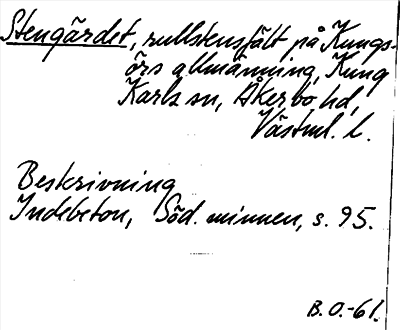 Stengärdet, rullstensfält på Kungs-
örs allmänning, Kung
Karls sn, Åkerbo hd,
Västml. l.
Beskrivning
Indebetou, Söd. minnen, s. 95.
B.O.-61.